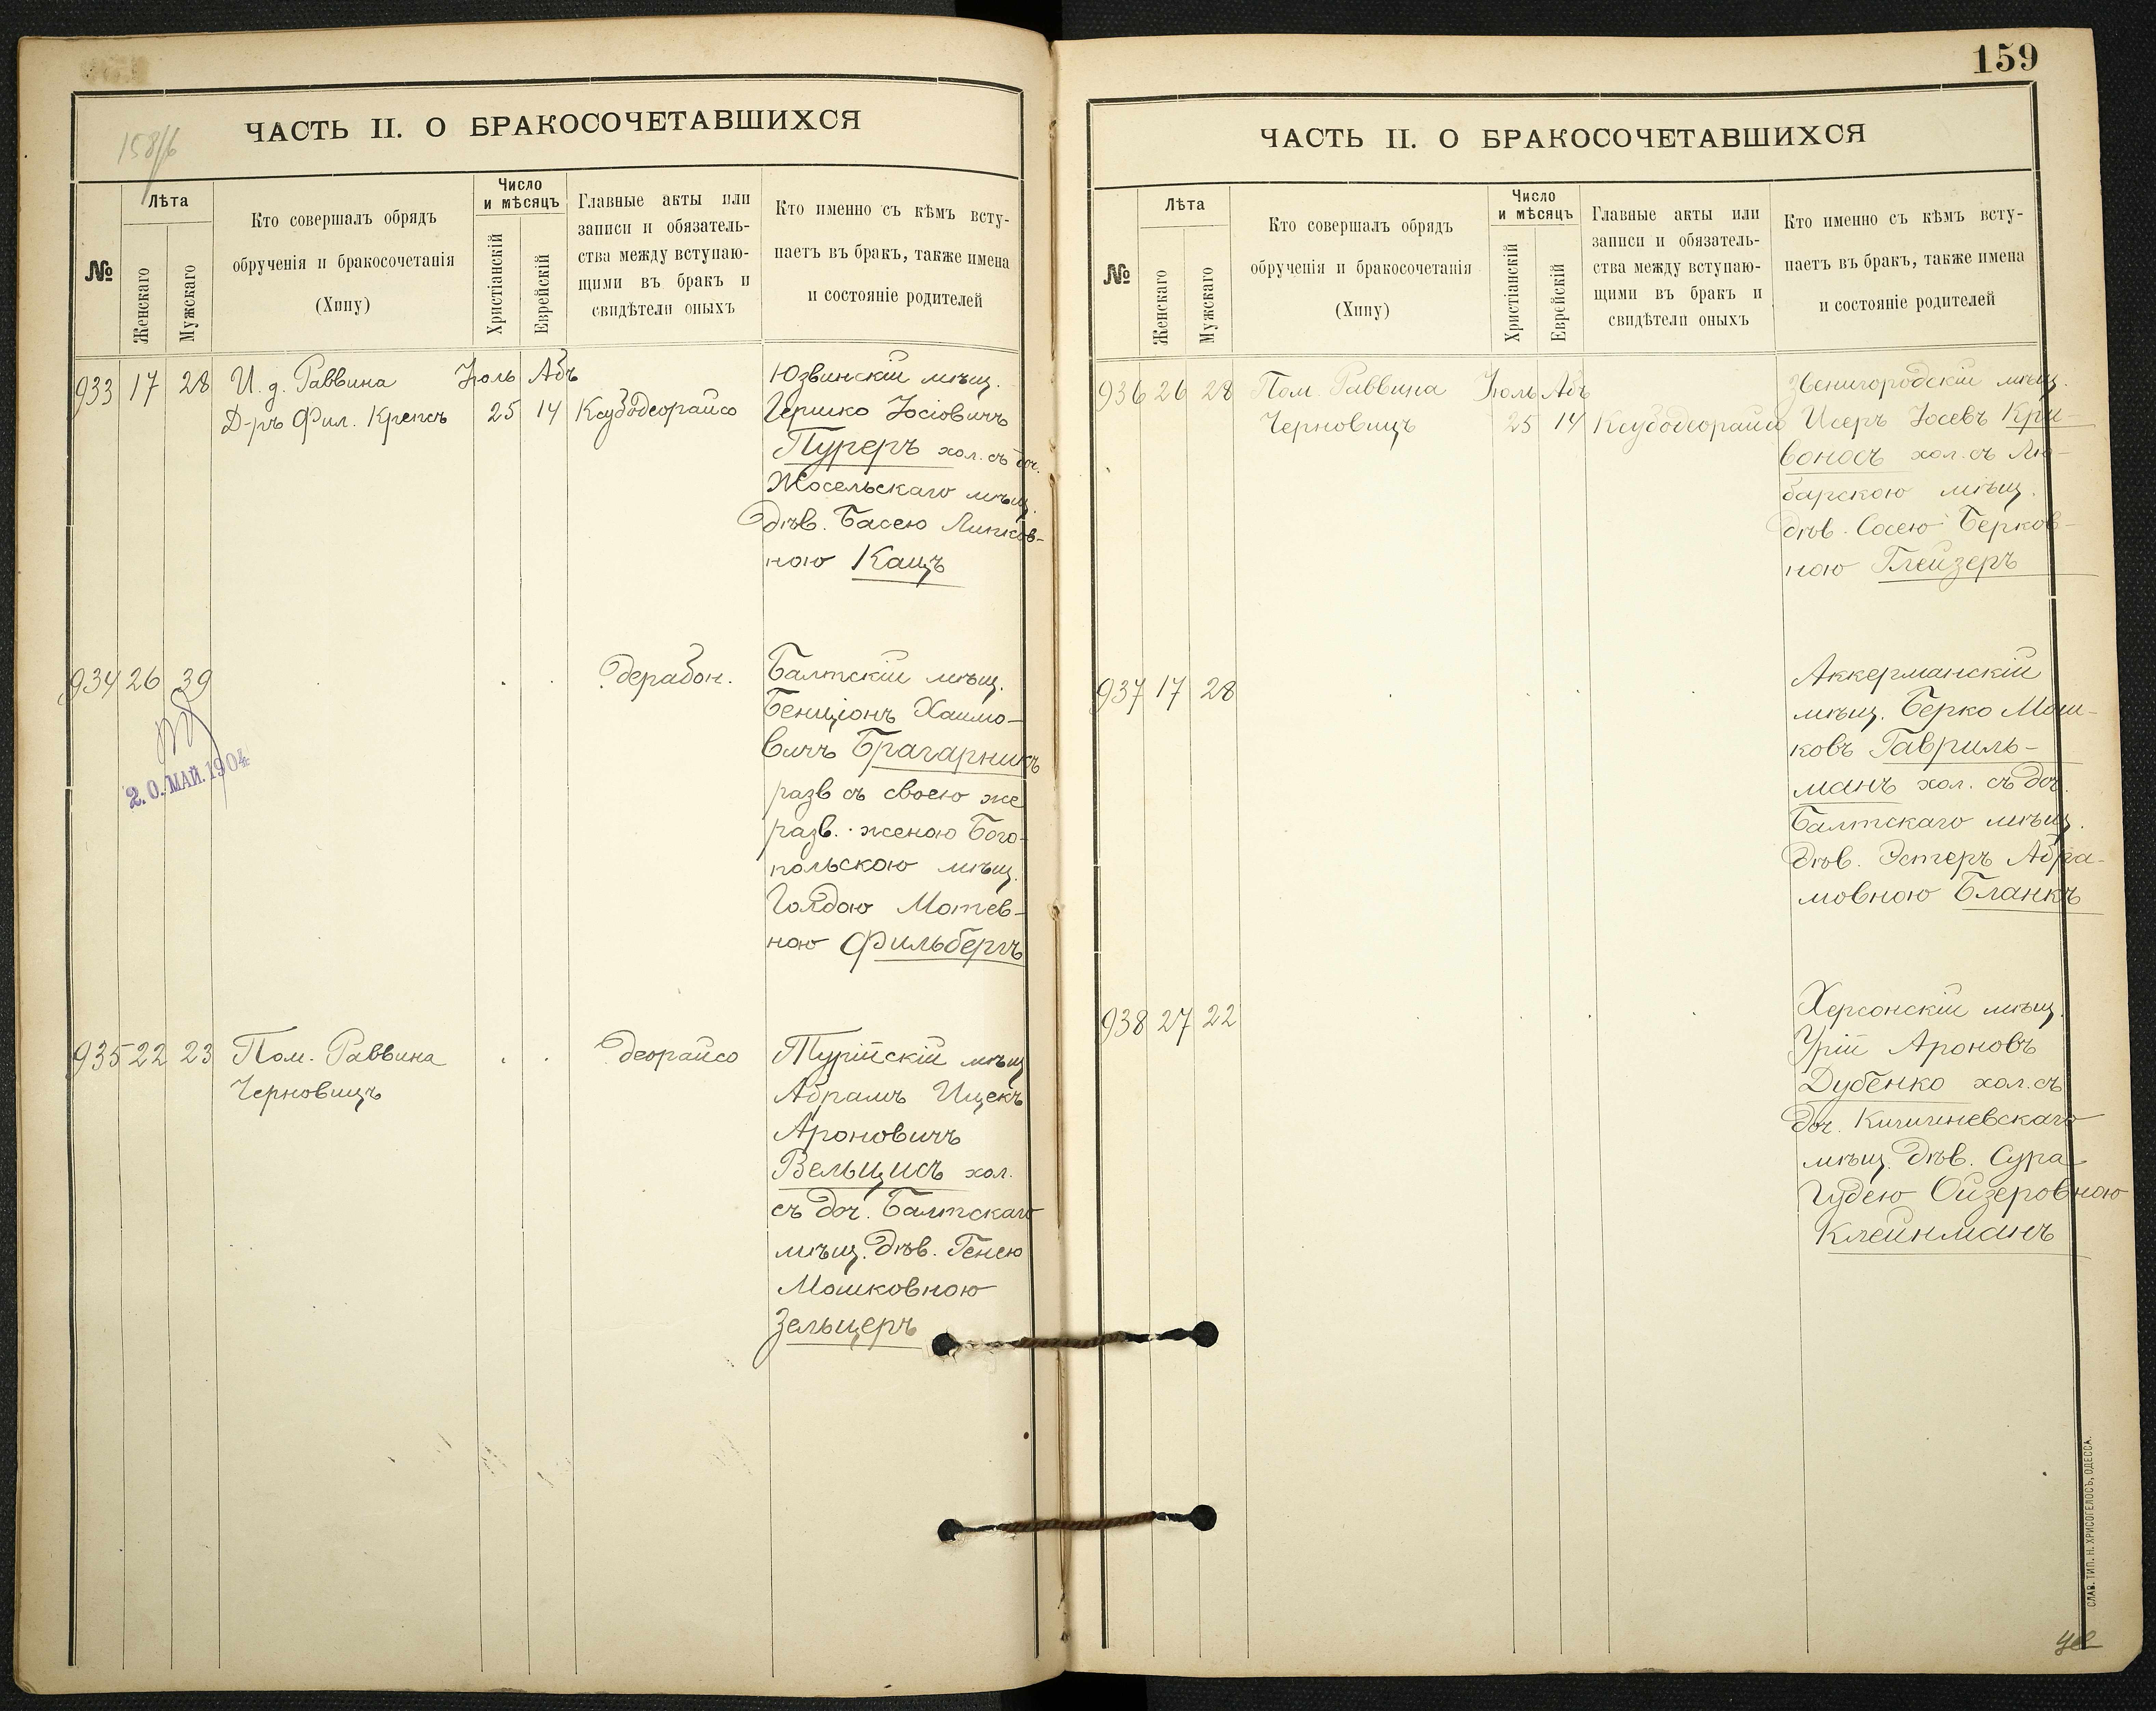 158/б
ЧАСТЬ II. О БРАКОСОЧЕТАВШИХСЯ
№
Лѣта
Женскаго
Мужскаго
Кто совершалъ обрядъ
обрученія и бракосочетанія
(Хипу)
Число
и мѣсяцъ
Христіанскій
Еврейскій
Главные акты или
записи и обязатель-
ства между вступаю-
щими въ бракъ и
свидѣтели оныхъ
Кто именно съ кѣмъ всту-
паетъ въ бракъ, также имена
и состояніе родителей
933 17 28 И. д. Раввина Іюль Абъ
Д-ръ Фил. Крепсъ 25 14 Ксубодеорайсо
Юзвинскій мѣщ.
Гершко Іосіовичъ
Пуреръ хол. съ доч.
Жосельскаго мѣщ.
дѣв. Басею Липков-
ною Кацъ
934 26 39 дерабон.
Балтскій мѣщ.
Бенціонъ Хаимо-
вичъ Брагарникъ
разв съ своею же
разв. женою Бого-
польскою мѣщ.
Голдою Мотев-
ною Фильбергъ
2.0. МАЙ. 1904
935 22 23 Пом. Раввина деорайсо
Черновицъ
Турійскій мѣщ
Абрамъ Ицекъ
Ароновичъ
Вельцисъ хол.
съ доч. Балтскаго
мѣщ. дѣв. Генею
Мошковною
Зельцеръ
159
ЧАСТЬ II. О БРАКОСОЧЕТАВШИХСЯ
№
Лѣта
Женскаго
Мужскаго
Кто совершалъ обрядъ
обрученія и бракосочетанія
(Хипу)
Число
и мѣсяцъ
Христіанскій
Еврейскій
Главные акты или
записи и обязатель-
ства между вступаю-
щими въ бракъ и
свидѣтели оныхъ
Кто именно съ кѣмъ всту-
паетъ въ бракъ, также имена
и состояніе родителей
936 26 28 Пом. Раввина Іюль Абъ
Черновицъ 25 14 Ксубодеорайсо
Звенигородскій мѣщ.
Исеръ Іосевъ Кри-
воносъ хол. съ Лю-
барскою мѣщ.
дѣв. Сосею Берков-
ною Глейзеръ
937 17 28
Аккерманскій
мѣщ. Берко Мош-
ковъ Гавриль-
манъ хол. съ доч.
Балтскаго мѣщ.
дѣв. Эстеръ Абра-
мовною Бланкъ
938 27 22
Херсонскій мѣщ.
Урій Ароновъ
Дубенко хол. съ
доч. Кишиневскаго
мѣщ. дѣв. Сура
Гудею Ойзеровною
Клейнманъ
СЛАВ. ТИП. Н. ХРИСОГЕЛОСЪ, ОДЕССА.